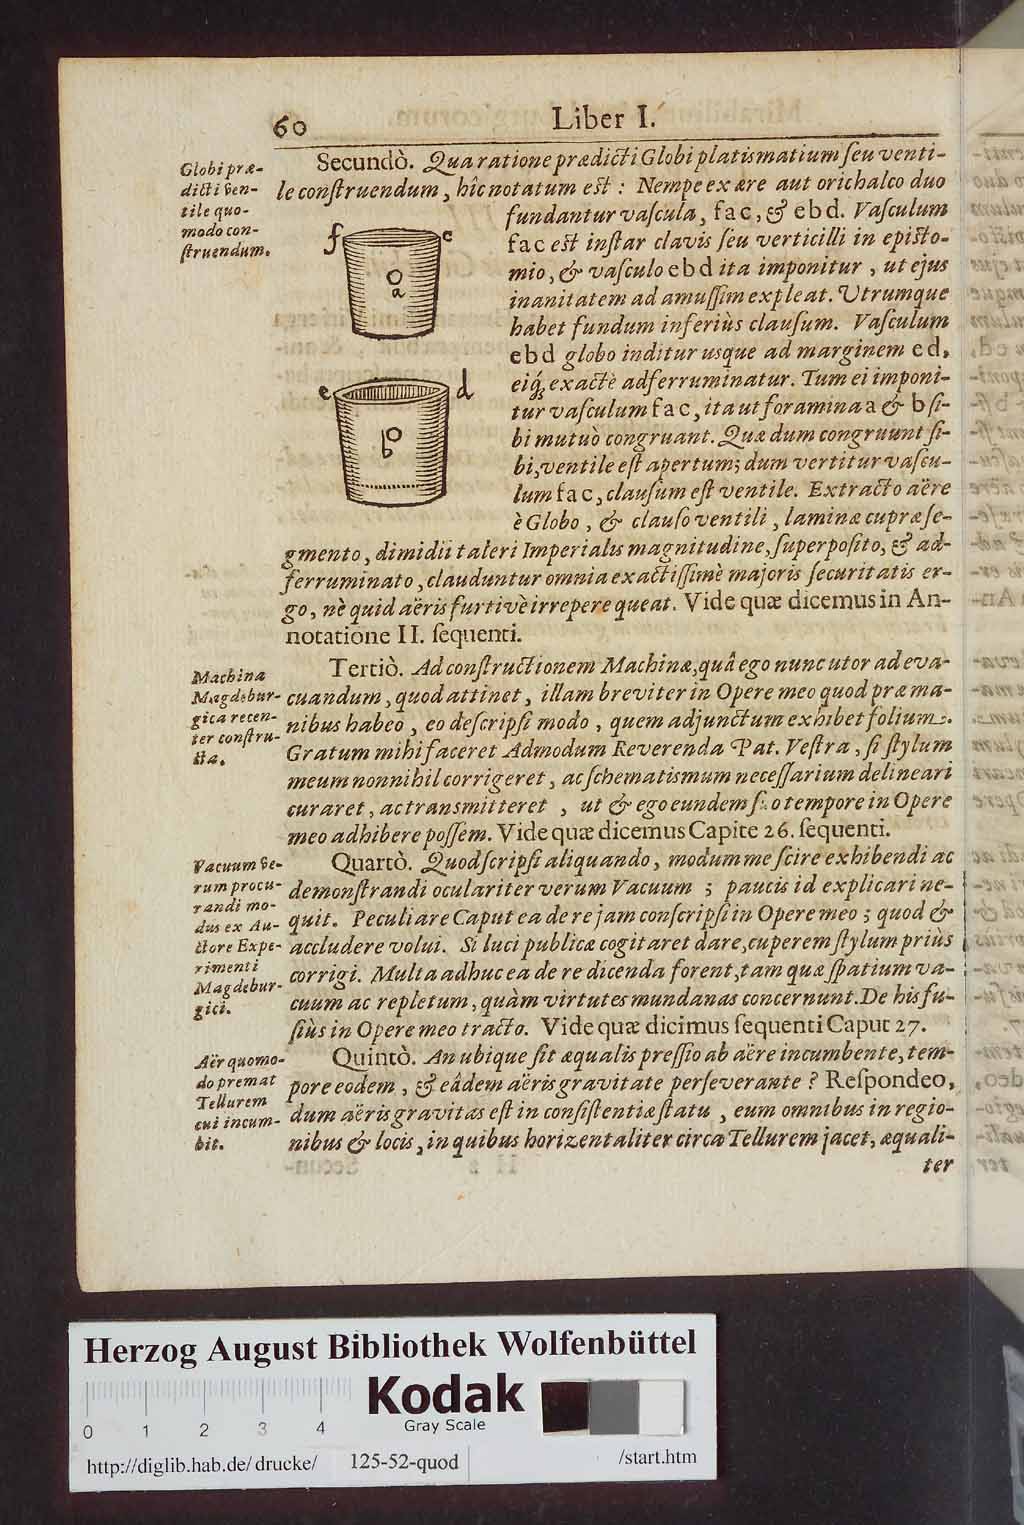 60
Liber I.
Globi præ-
dicti ven-
tile quo-
modo con-
ſtruendum.
Secundò. Qua ratione prædicti Globi platismatium ſeu venti-
le conſtruendum, hîc notatum eſt: Nempe ex ære aut orichalco duo
fundantur vaſcula, fac, & ebd. Vaſculum
fac eſt inſtar clavis ſeu verticilli in epiſto-
mio, & vaſculo ebd ita imponitur, ut ejus
inanitatem ad amuſſim expleat. Utrumque
habet fundum inferiùs clauſum. Vaſculum
ebd globo inditur usque ad marginem ed,
eiq́; exactè adferruminatur. Tum ei imponi-
tur vaſculum fac, ita ut foramina a & b ſi-
bi mutuò congruant. Quæ dum congruunt ſi-
bi, ventile eſt apertum; dum vertitur vaſcu-
lum fac, clauſum eſt ventile. Extracto aëre
è Globo, & clauſo ventili, laminæ cupræ ſe-
gmento, dimidii taleri Imperialis magnitudine, ſuperpoſito, & ad-
ferruminato, clauduntur omnia exactiſſimè majoris ſecuritatis er-
go, nè quid aëris furtivè irrepere queat. Vide quæ dicemus in An-
notatione II. ſequenti.
f
c
a
e
d
b
Machina
Magdebur-
gica recen-
ter conſtru-
cta.
Tertiò. Ad conſtructionem Machinæ, quâ ego nunc utor ad eva-
cuandum, quod attinet, illam breviter in Opere meo quod præ ma-
nibus habeo, eo deſcripſi modo, quem adjunctum exhibet folium.
Gratum mihi faceret Admodum Reverenda Pat. Veſtra, ſi ſtylum
meum nonnihil corrigeret, ac ſchematismum neceſſarium delineari
curaret, ac transmitteret, ut & ego eundem ſuo tempore in Opere
meo adhibere poſſem. Vide quæ dicemus Capite 26. ſequenti.
Vacuum ve-
rum procu-
randi mo-
dus ex Au-
ctore Expe-
rimenti
Magdebur-
gici.
Quartò. Quod ſcripſi aliquando, modum me ſcire exhibendi ac
demonſtrandi oculariter verum Vacuum; paucis id explicari ne-
quit. Peculiare Caput ea de re jam conſcripſi in Opere meo; quod &
accludere volui. Si luci publicæ cogitaret dare, cuperem ſtylum priùs
corrigi. Multa adhuc ea de re dicenda forent, tam quæ ſpatium va-
cuum ac repletum, quàm virtutes mundanas concernunt. De his fu-
ſiùs in Opere meo tracto. Vide quæ dicimus ſequenti Caput 27.
Aër quomo-
do premat
Tellurem
cui incum-
bit.
Quintò. An ubique ſit æqualis preſſio ab aëre incumbente, tem-
pore eodem, & eâdem aëris gravitate perſeverante? Reſpondeo,
dum aëris gravitas eſt in conſiſtentiæ ſtatu, eum omnibus in regio-
nibus & locis, in quibus horizentaliter circa Tellurem jacet, æquali-
ter
Herzog August Bibliothek Wolfenbüttel
Kodak
Gray Scale
0 1 2 3 4
http://diglib.hab.de/drucke/ 125-52-quod /start.htm